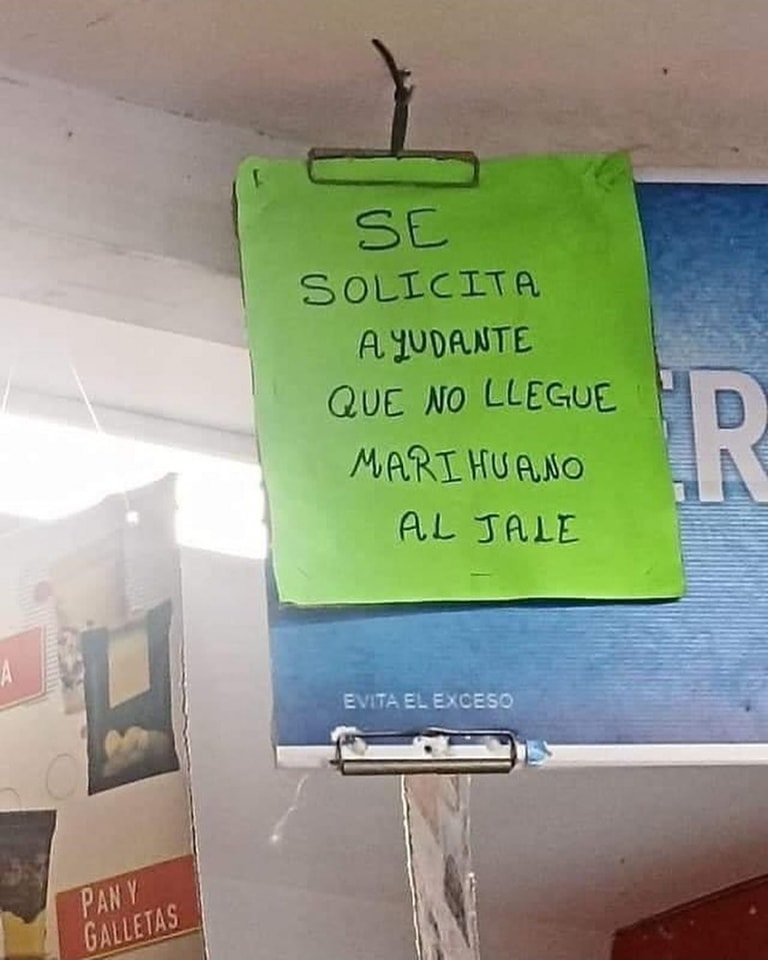 SE
SOLICITA
AYUDANTE
QUE NO LLEGUE
MARIHUANO
AL JALE
ER
EVITA EL EXCESO
A
PAN Y
GALLETAS